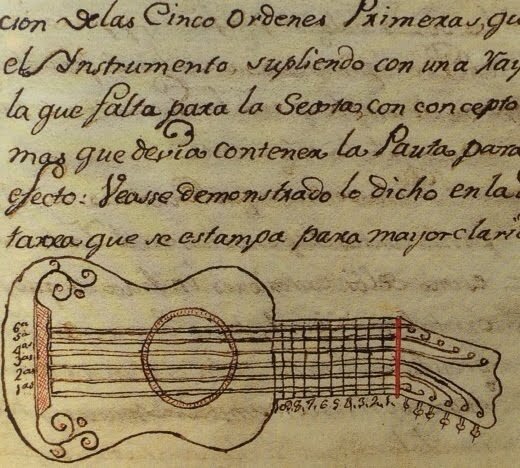 cion de las Cinco Ordenes Primeras, qu
el Ynstrumento, supliendo con una Ray
la que falta para la Sexta, con concepto
mas que devia contener la Pauta para
efecto: Veasse demonstrado lo dicho en la
tarra que se estampa para mayor clari
6ª
5ª
4as
3as
2as
1as
10.9.8.7.6.5.4.3.2.1.